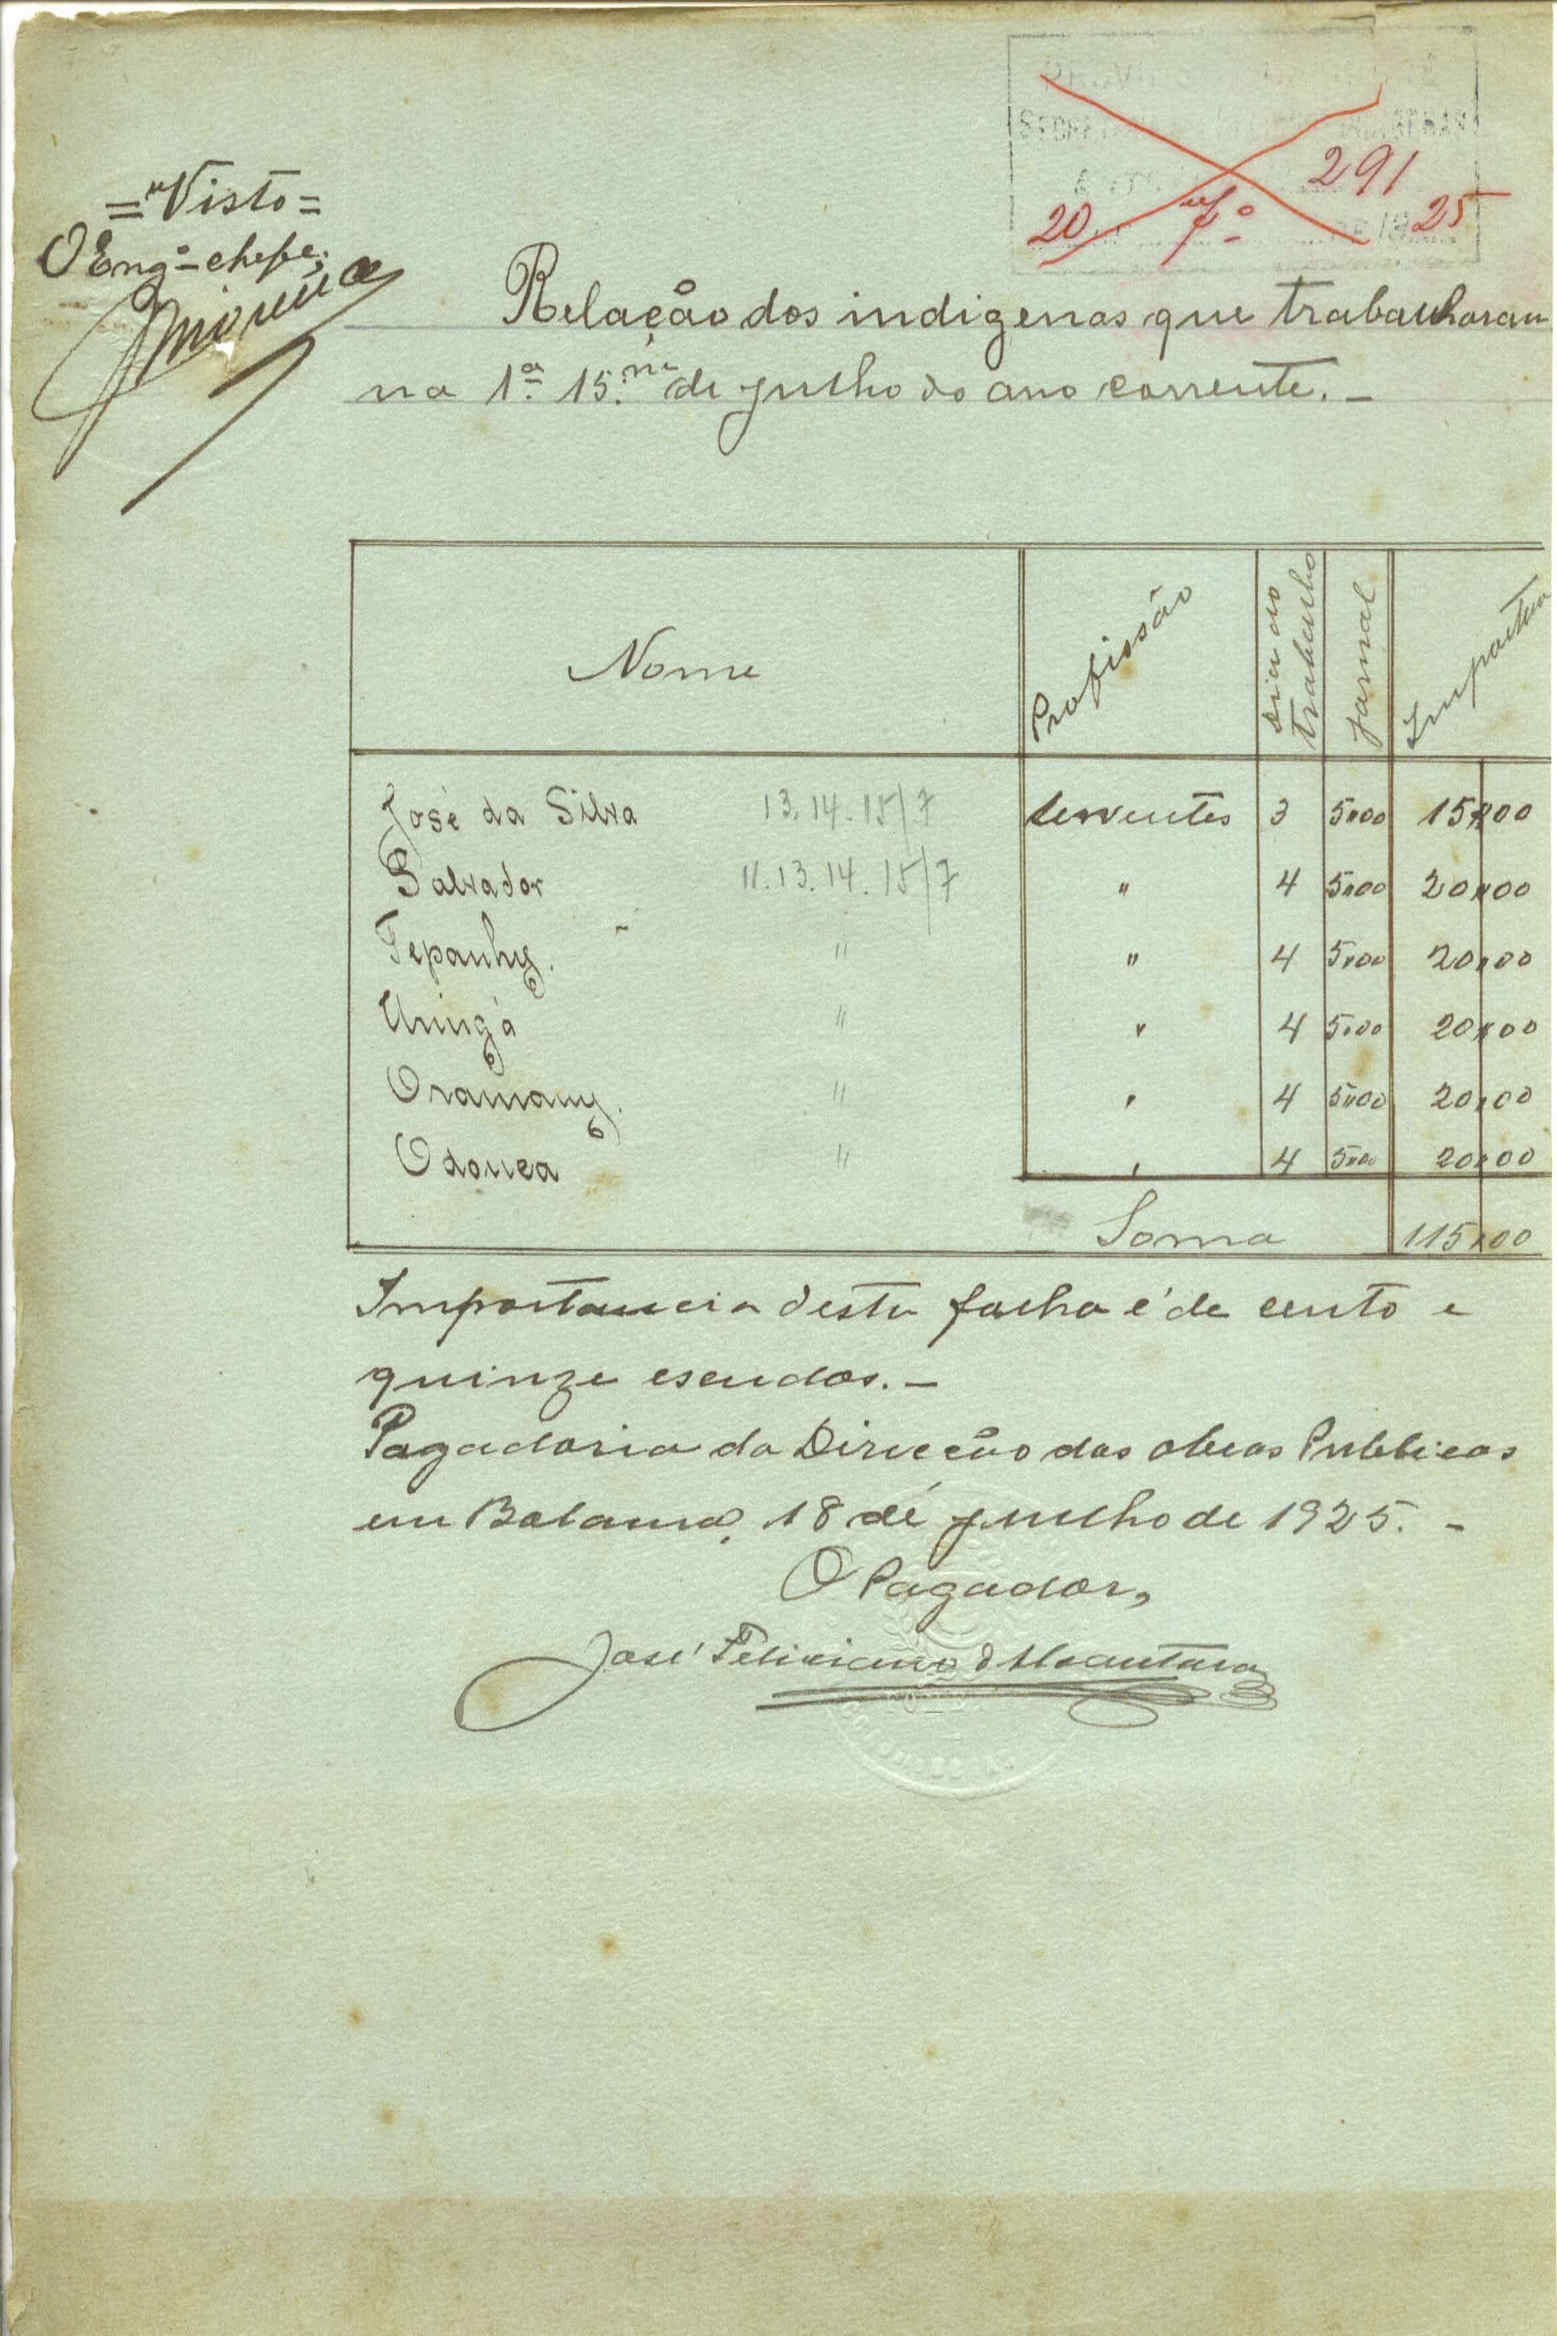 SECRET
291
20 7º 25
="Visto=
O Engº-chefe;
Relação dos indigenas que trabalharam
na 1ª 15.na de julho do ano corrente. _
Nome Profissão dia do trabalho jornal Importa
José da Silva 13.14.15/7 serventes 3 5"00 15"00
Salvador 11.13.14.15/7 " 4 5"00 20"00
Tepanhy. " " 4 5"00 20"00
Uringá " " 4 5"00 20"00
Oramany. " " 4 5"00 20"00
Odonca " " 4 5"00 20"00
Soma 115"00
Importancia desta folha é de cento e
quinze escudos. _
Pagadoria da Direcção das obras Publicas
em Bolama, 18 de julho de 1925. _
O Pagador,
José Feliciano d'Alcantara